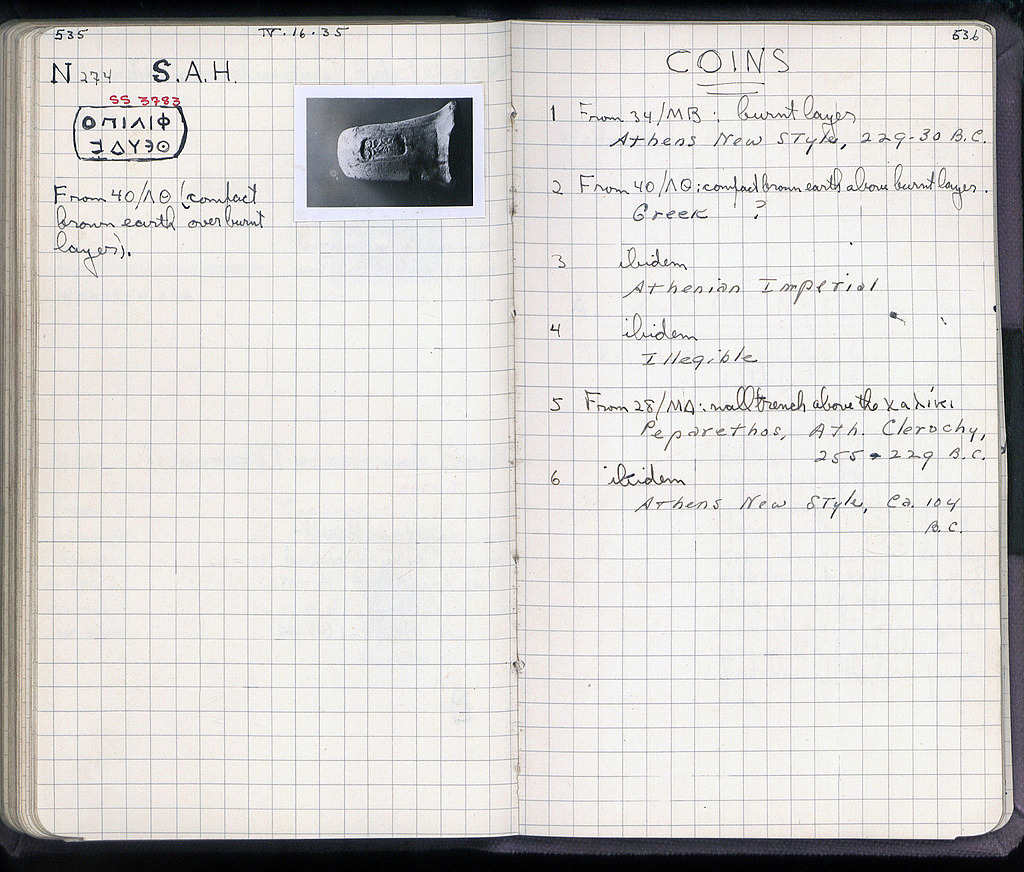 535
IV.16.35
N 274 S.A.H.
SS 3783
ΟΠΙΛΙΦ
ƎΔΥ϶Θ
From 40/ΛΘ (compact
brown earth over burnt
layer).
536
COINS
1 From 34/ΜΒ: burnt layer
Athens New Style, 229-30 B.C.
2 From 40/ΛΘ: compact brown earth above burnt layer.
Greek ?
3 ibidem
Athenian Imperial
4 ibidem
Illegible
5 From 28/ΜΔ: wall trench above the χαλίκι
Peparethos, Ath. Clerochy,
255-229 B.C.
6 ibidem
Athens New Style, Ca. 104
B.C.